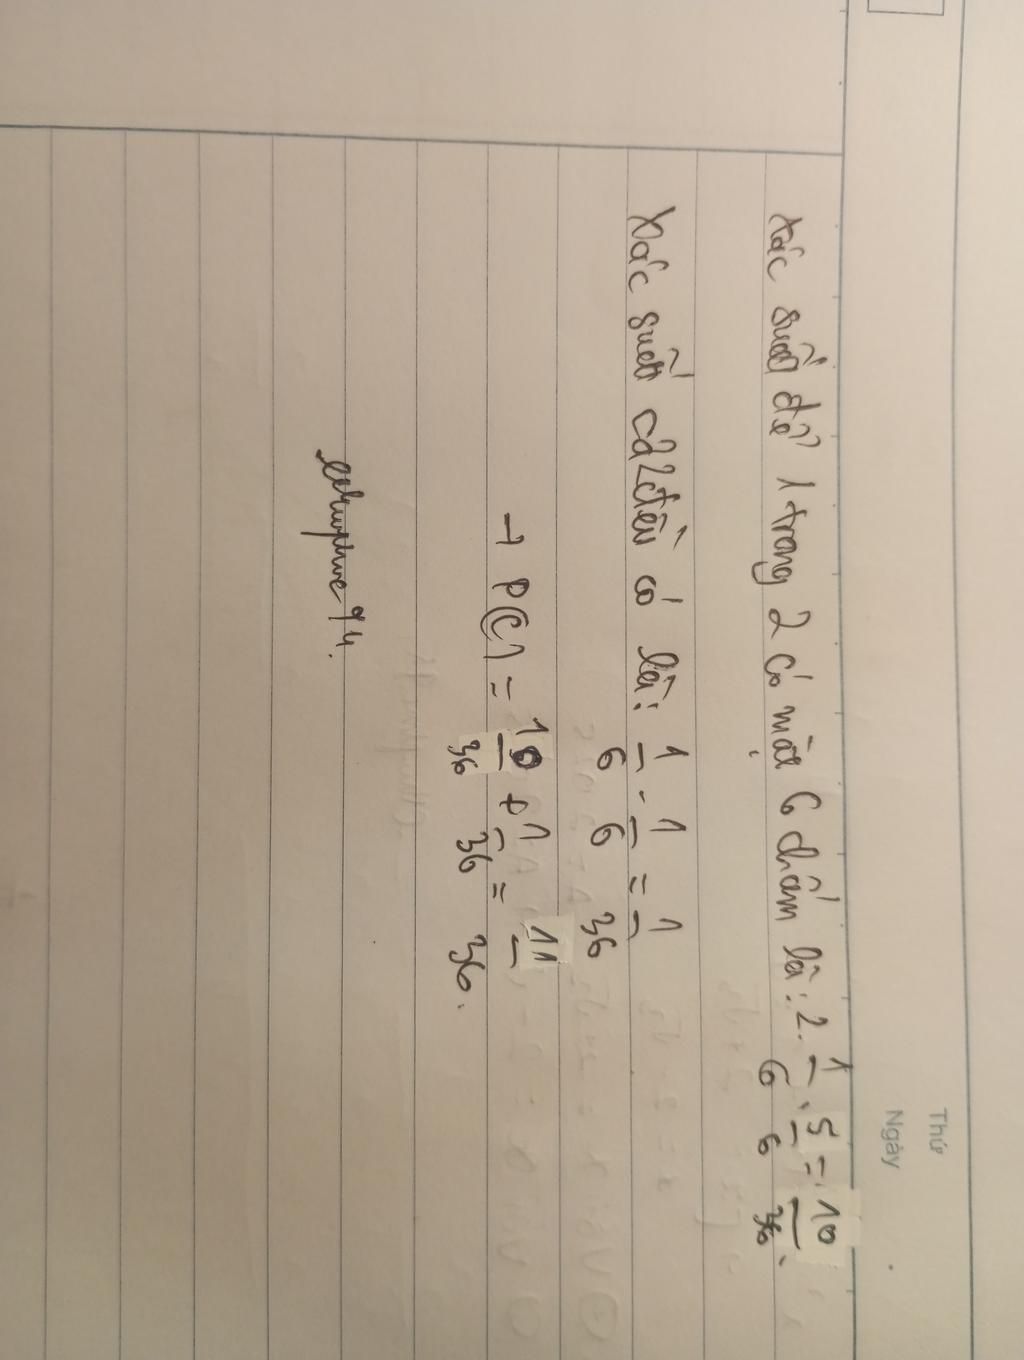 Thứ
Ngày
Xác suất để 1 trong 2 có mặt 6 chấm là: 2. 1/6 . 5/6 = 10/36.
Xác suất cả 2 đều có là: 1/6 . 1/6 = 1/36
→ P(C) = 10/36 + 1/36 = 11/36.